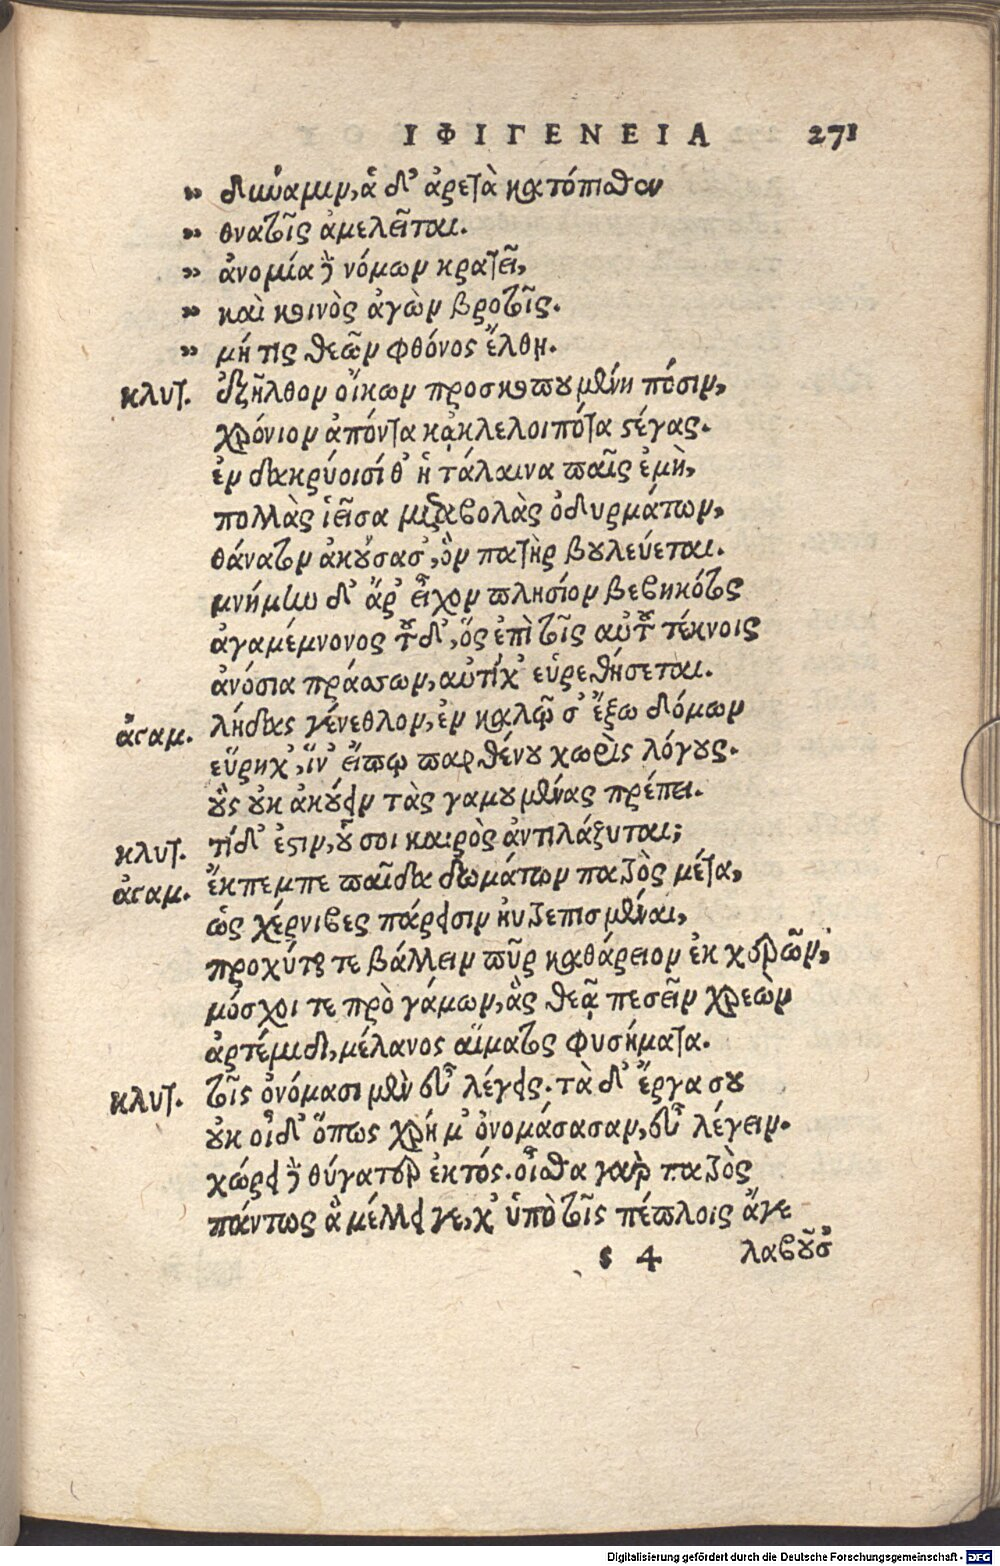 ΙΦΙΓΕΝΕΙΑ 271
" δύναμιν, ἁ δ' ἀρετὰ κατόπισθεν
" θνατοῖς ἀμελεῖται.
" ἀνομία δὲ νόμων κρατεῖ,
" καὶ κοινὸς ἀγὼν βροτοῖς.
" μή τις θεῶν φθόνος ἔλθῃ.
κλυτ. ἐξῆλθον οἴκων προσκοπουμένη πόσιν,
χρόνιον ἀπόντα κἀκλελοιπότα στέγας.
ἐν δακρύοισί θ' ἡ τάλαινα παῖς ἐμὴ,
πολλὰς ἱεῖσα μεταβολὰς ὀδυρμάτων,
θάνατον ἀκούσασ', ὃν πατὴρ βουλεύεται.
μνήμην δ' ἄρ' εἶχον πλησίον βεβηκότος
ἀγαμέμνονος τοῦδ', ὃς ἐπὶ τοῖς αὑτοῦ τέκνοις
ἀνόσια πράσσων, αὐτίχ' εὑρεθήσεται.
ἀγαμ. λήδας γένεθλον, ἐν καλῷ σ' ἔξω δόμων
εὕρηχ', ἵν' εἴπω παρθένου χωρὶς λόγους.
οὓς οὐκ ἀκούειν τὰς γαμουμένας πρέπει.
κλυτ. τί δ' ἐστιν, οὗ σοι καιρὸς ἀντιλάζυται;
ἀγαμ. ἔκπεμπε παῖδα δωμάτων πατρὸς μέτα,
ὡς χέρνιβες πάρεισιν ηὐτρεπισμέναι,
προχύται τε βάλλειν πῦρ καθάρειον ἐκ χερῶν,
μόσχοι τε πρὸ γάμων, ἃς θεᾷ πεσεῖν χρεὼν
ἀρτέμιδι, μέλανος αἵματος φυσήματα.
κλυτ. τοῖς ὀνόμασι μὲν εὖ λέγεις. τὰ δ' ἔργα σου
οὐκ οἶδ' ὅπως χρή μ' ὀνομάσασαν, εὖ λέγειν.
χώρει δὲ θύγατερ ἐκτός. οἶσθα γὰρ πατρὸς
πάντως ἃ μέλλει γε, χ' ὑπὸ τοῖς πέπλοις ἄγε
s 4 λαβοῦσ'
Digitalisierung gefördert durch die Deutsche Forschungsgemeinschaft - DFG